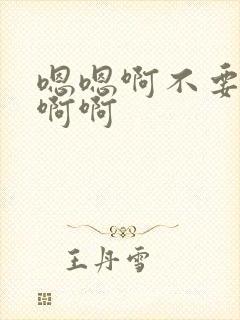 嗯嗯啊不要
啊啊
王丹雪